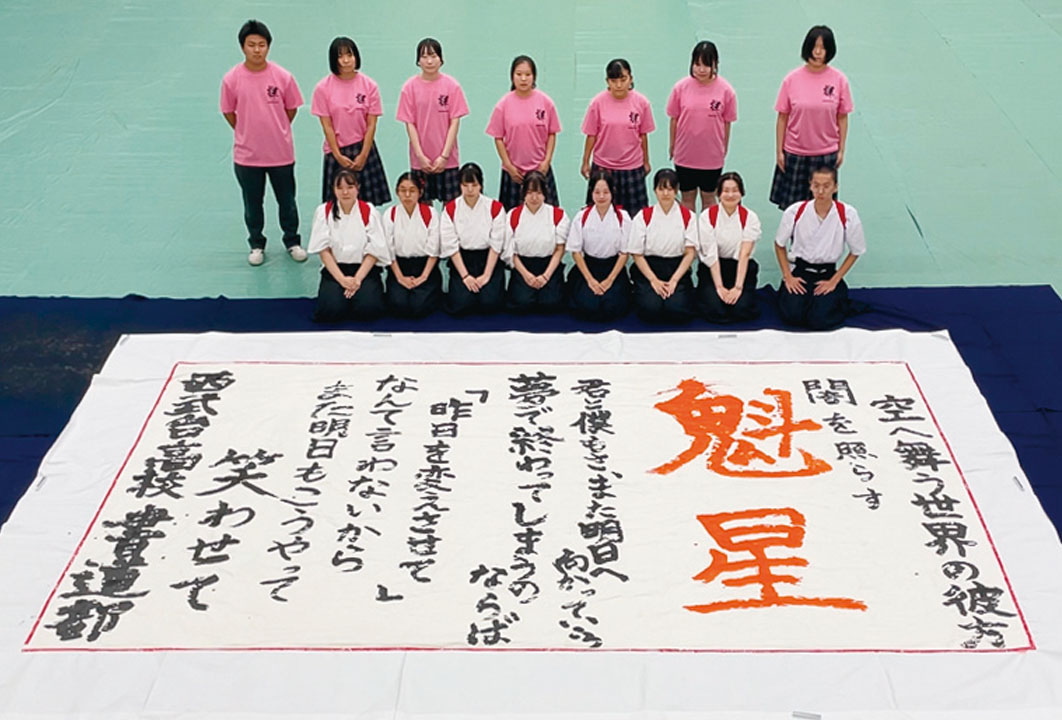 空へ舞う世界の彼方
闇を照らす
魁星
君と僕もさ、また明日へ
向かっていこう
夢で終わってしまうの
ならば
「昨日を変えさせて」
なんて言わないから
また明日もこうやって
笑わせて
西武台高校 書道部